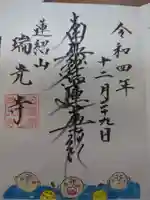 令和四年
十二月二十九日
南無妙法蓮華経
連紹山
瑞光寺